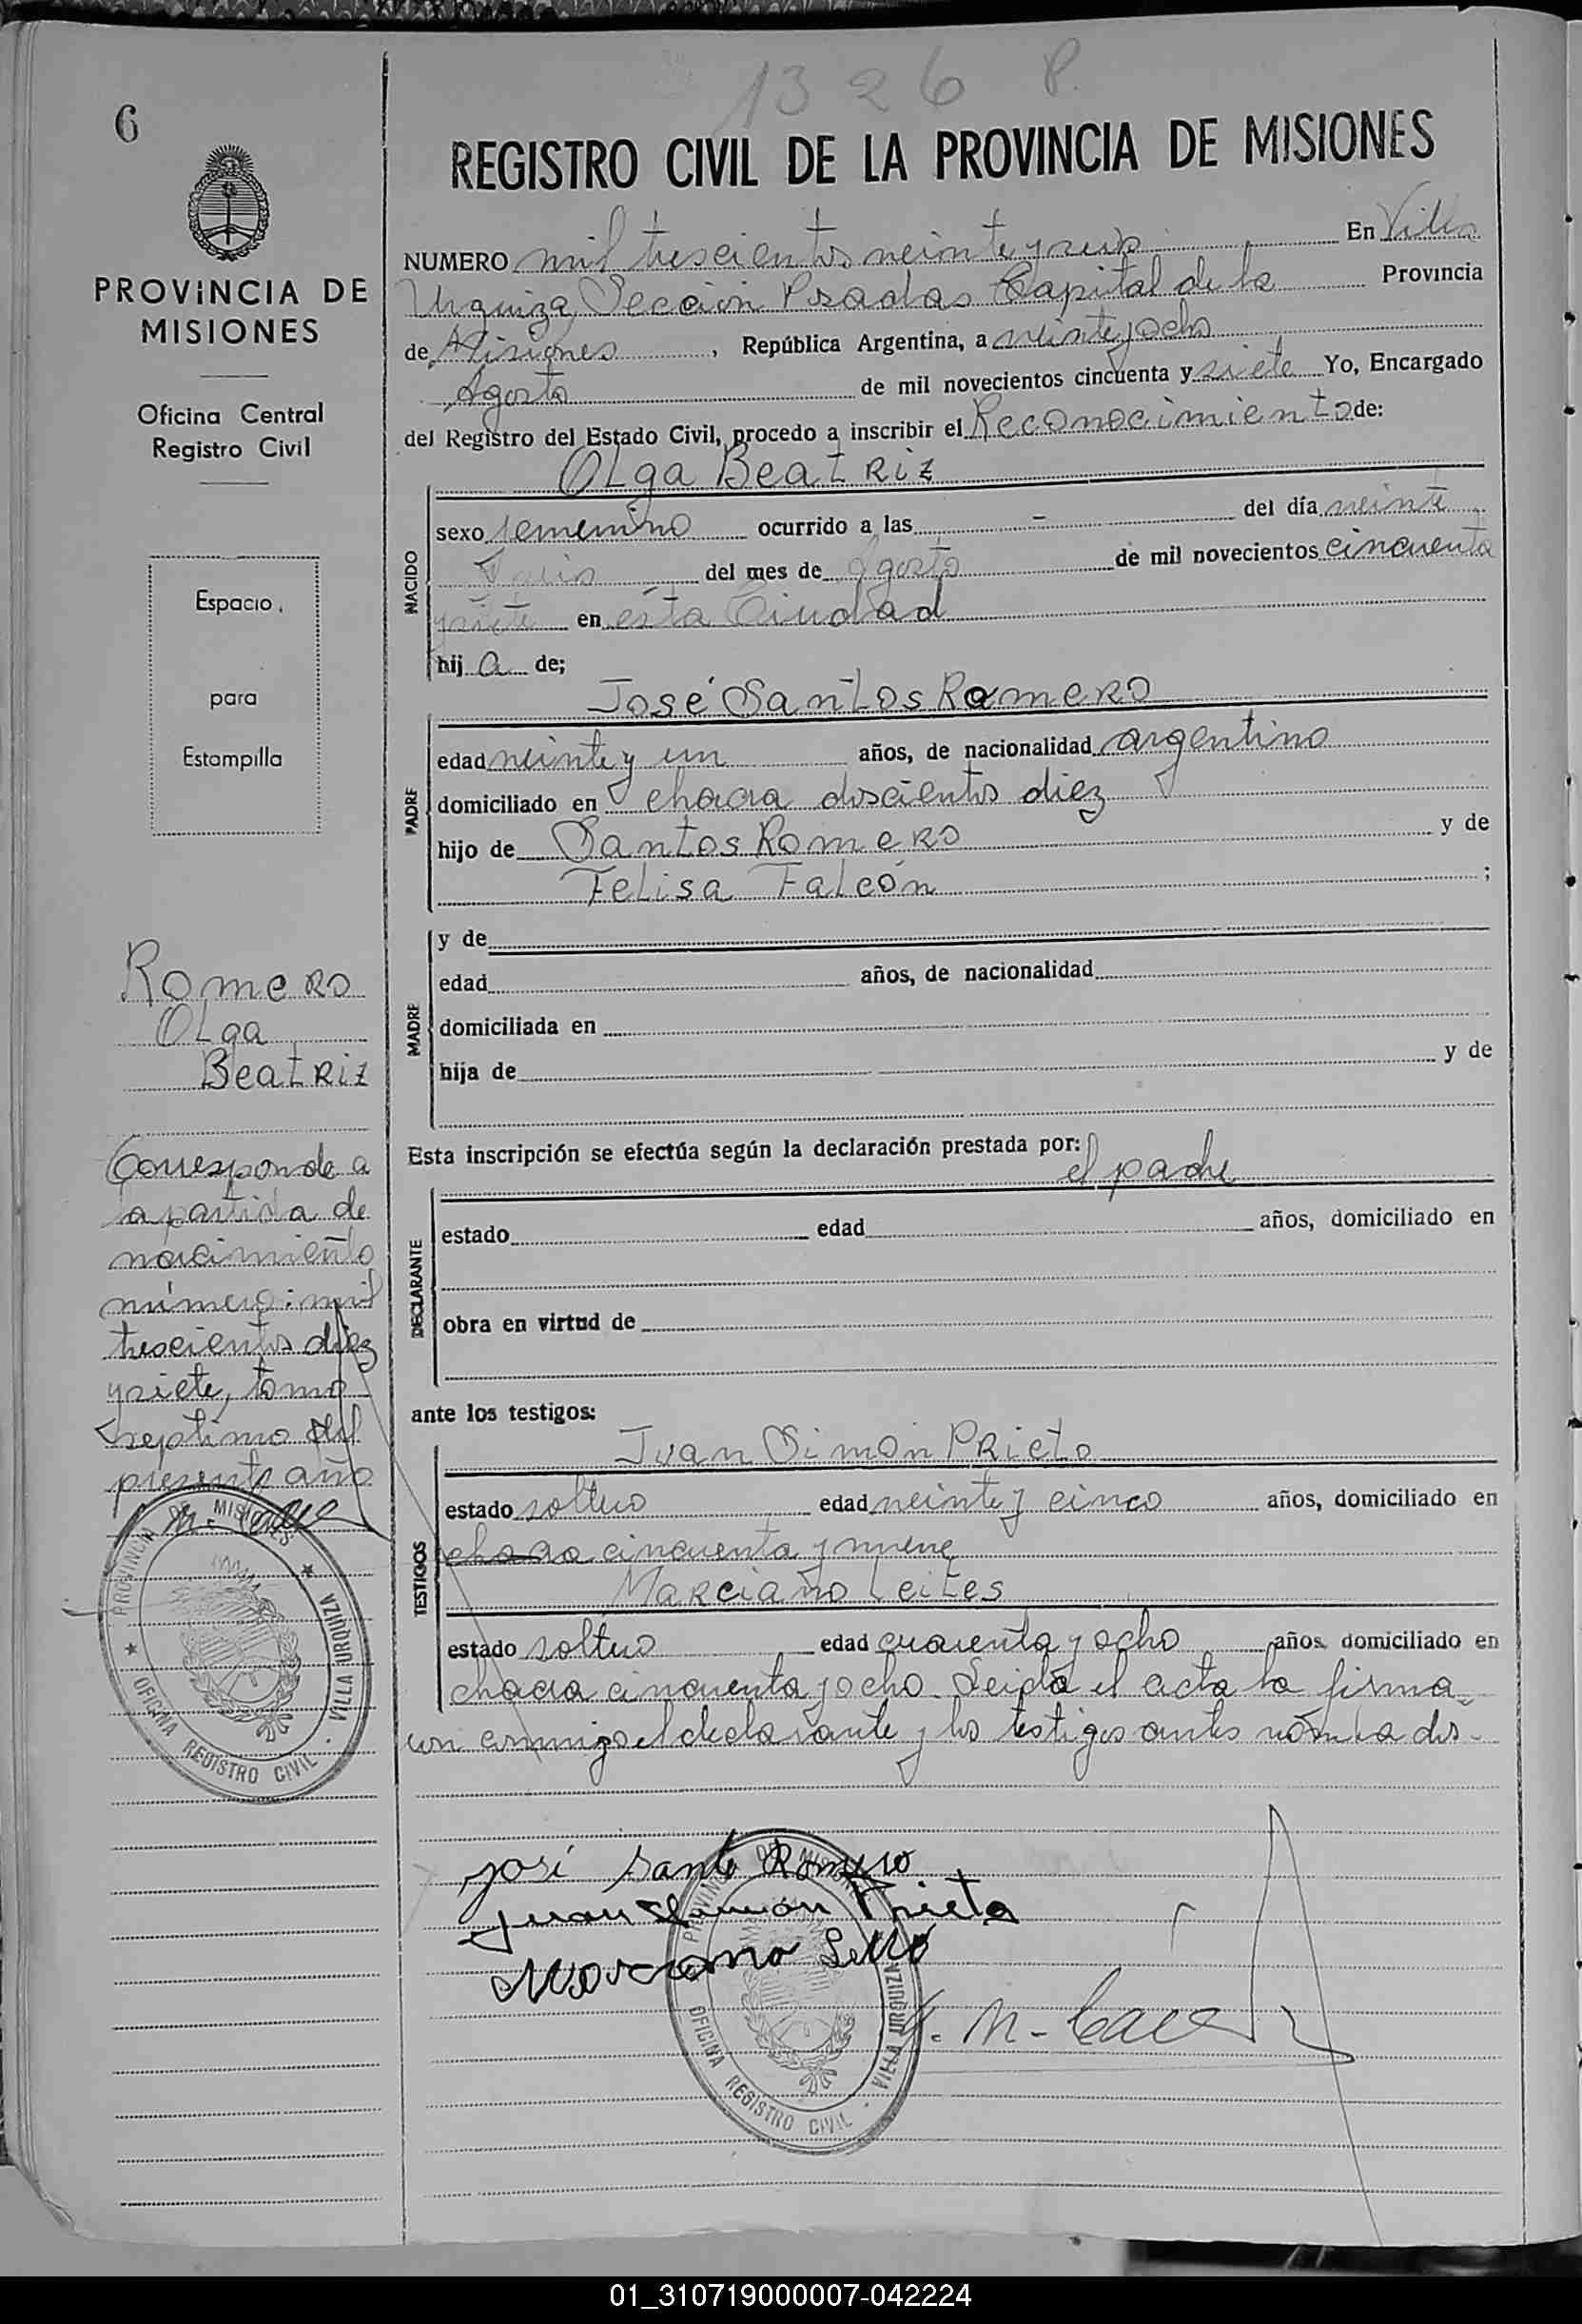 1326 P.
6
REGISTRO CIVIL DE LA PROVINCIA DE MISIONES
PROVINCIA DE
MISIONES
Oficina Central
Registro Civil
Espacio
para
Estampilla
Romero
Olga
Beatriz
Corresponde a
la partida de
nacimiento
número: mil
trescientos diez
y siete, tomo
septimo del
presente año
PROVINCIA DE MISIONES
OFICINA REGISTRO CIVIL - VILLA URQUIZA
NUMERO mil trescientos veinte y seis En Villa
Urquiza, Sección Posadas Capital de la Provincia
de Misiones, República Argentina, a veinte y ocho
Agosto de mil novecientos cincuenta y siete Yo, Encargado
del Registro del Estado Civil, procedo a inscribir el Reconocimiento de:
Olga Beatriz
NACIDO
sexo femenino ocurrido a las - del día veinte
del mes de Agosto de mil novecientos cincuenta
y siete en esta Ciudad
hij a de;
José Santos Romero
PADRE
edad veinte y un años, de nacionalidad argentino
domiciliado en chacra doscientos diez
hijo de Santos Romero y de
Felisa Falcón ;
MADRE
y de
edad años, de nacionalidad
domiciliada en
hija de y de
Esta inscripción se efectúa según la declaración prestada por:
el padre
DECLARANTE
estado edad años, domiciliado en
obra en virtud de
ante los testigos:
Juan Simón Prieto
TESTIGOS
estado soltero edad veinte y cinco años, domiciliado en
chacra cincuenta y nueve
Marciano Leites
estado soltero edad cuarenta y ocho años, domiciliado en
chacra cincuenta y ocho. Leida el acta la firma
con conmigo el declarante y los testigos antes nombrados.-
José Santo Romero
Juan Simón Prieto
Marciano
PROVINCIA DE MISIONES
OFICINA REGISTRO CIVIL - VILLA URQUIZA
01_310719000007-042224